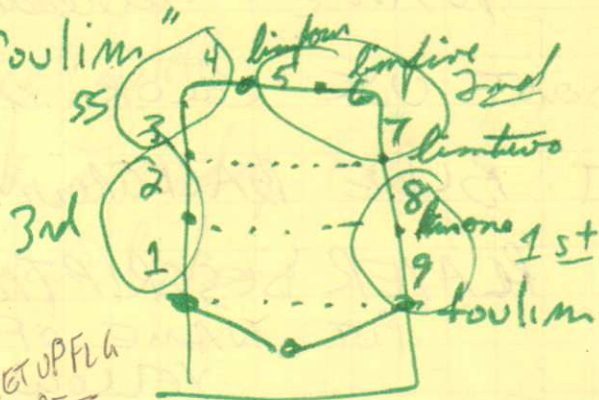 oulim"
4
limfour
5
limfive
6
2nd
SS
3
7
limtwo
2
8
3rd
limone
1st
1
9
foulim
ETUPFLG